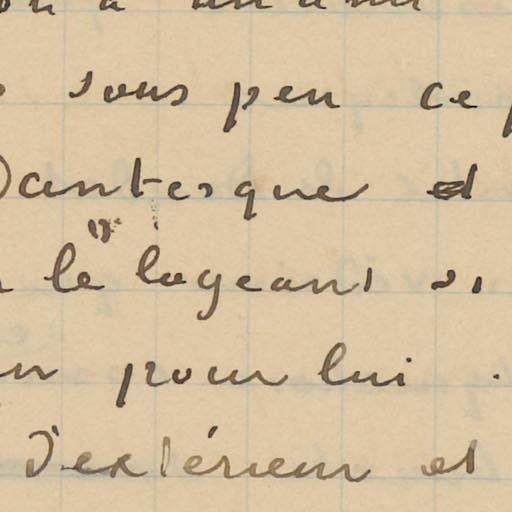 sous peu ce
Dantesque et
le logeant si
pour lui .
d'extérieur et